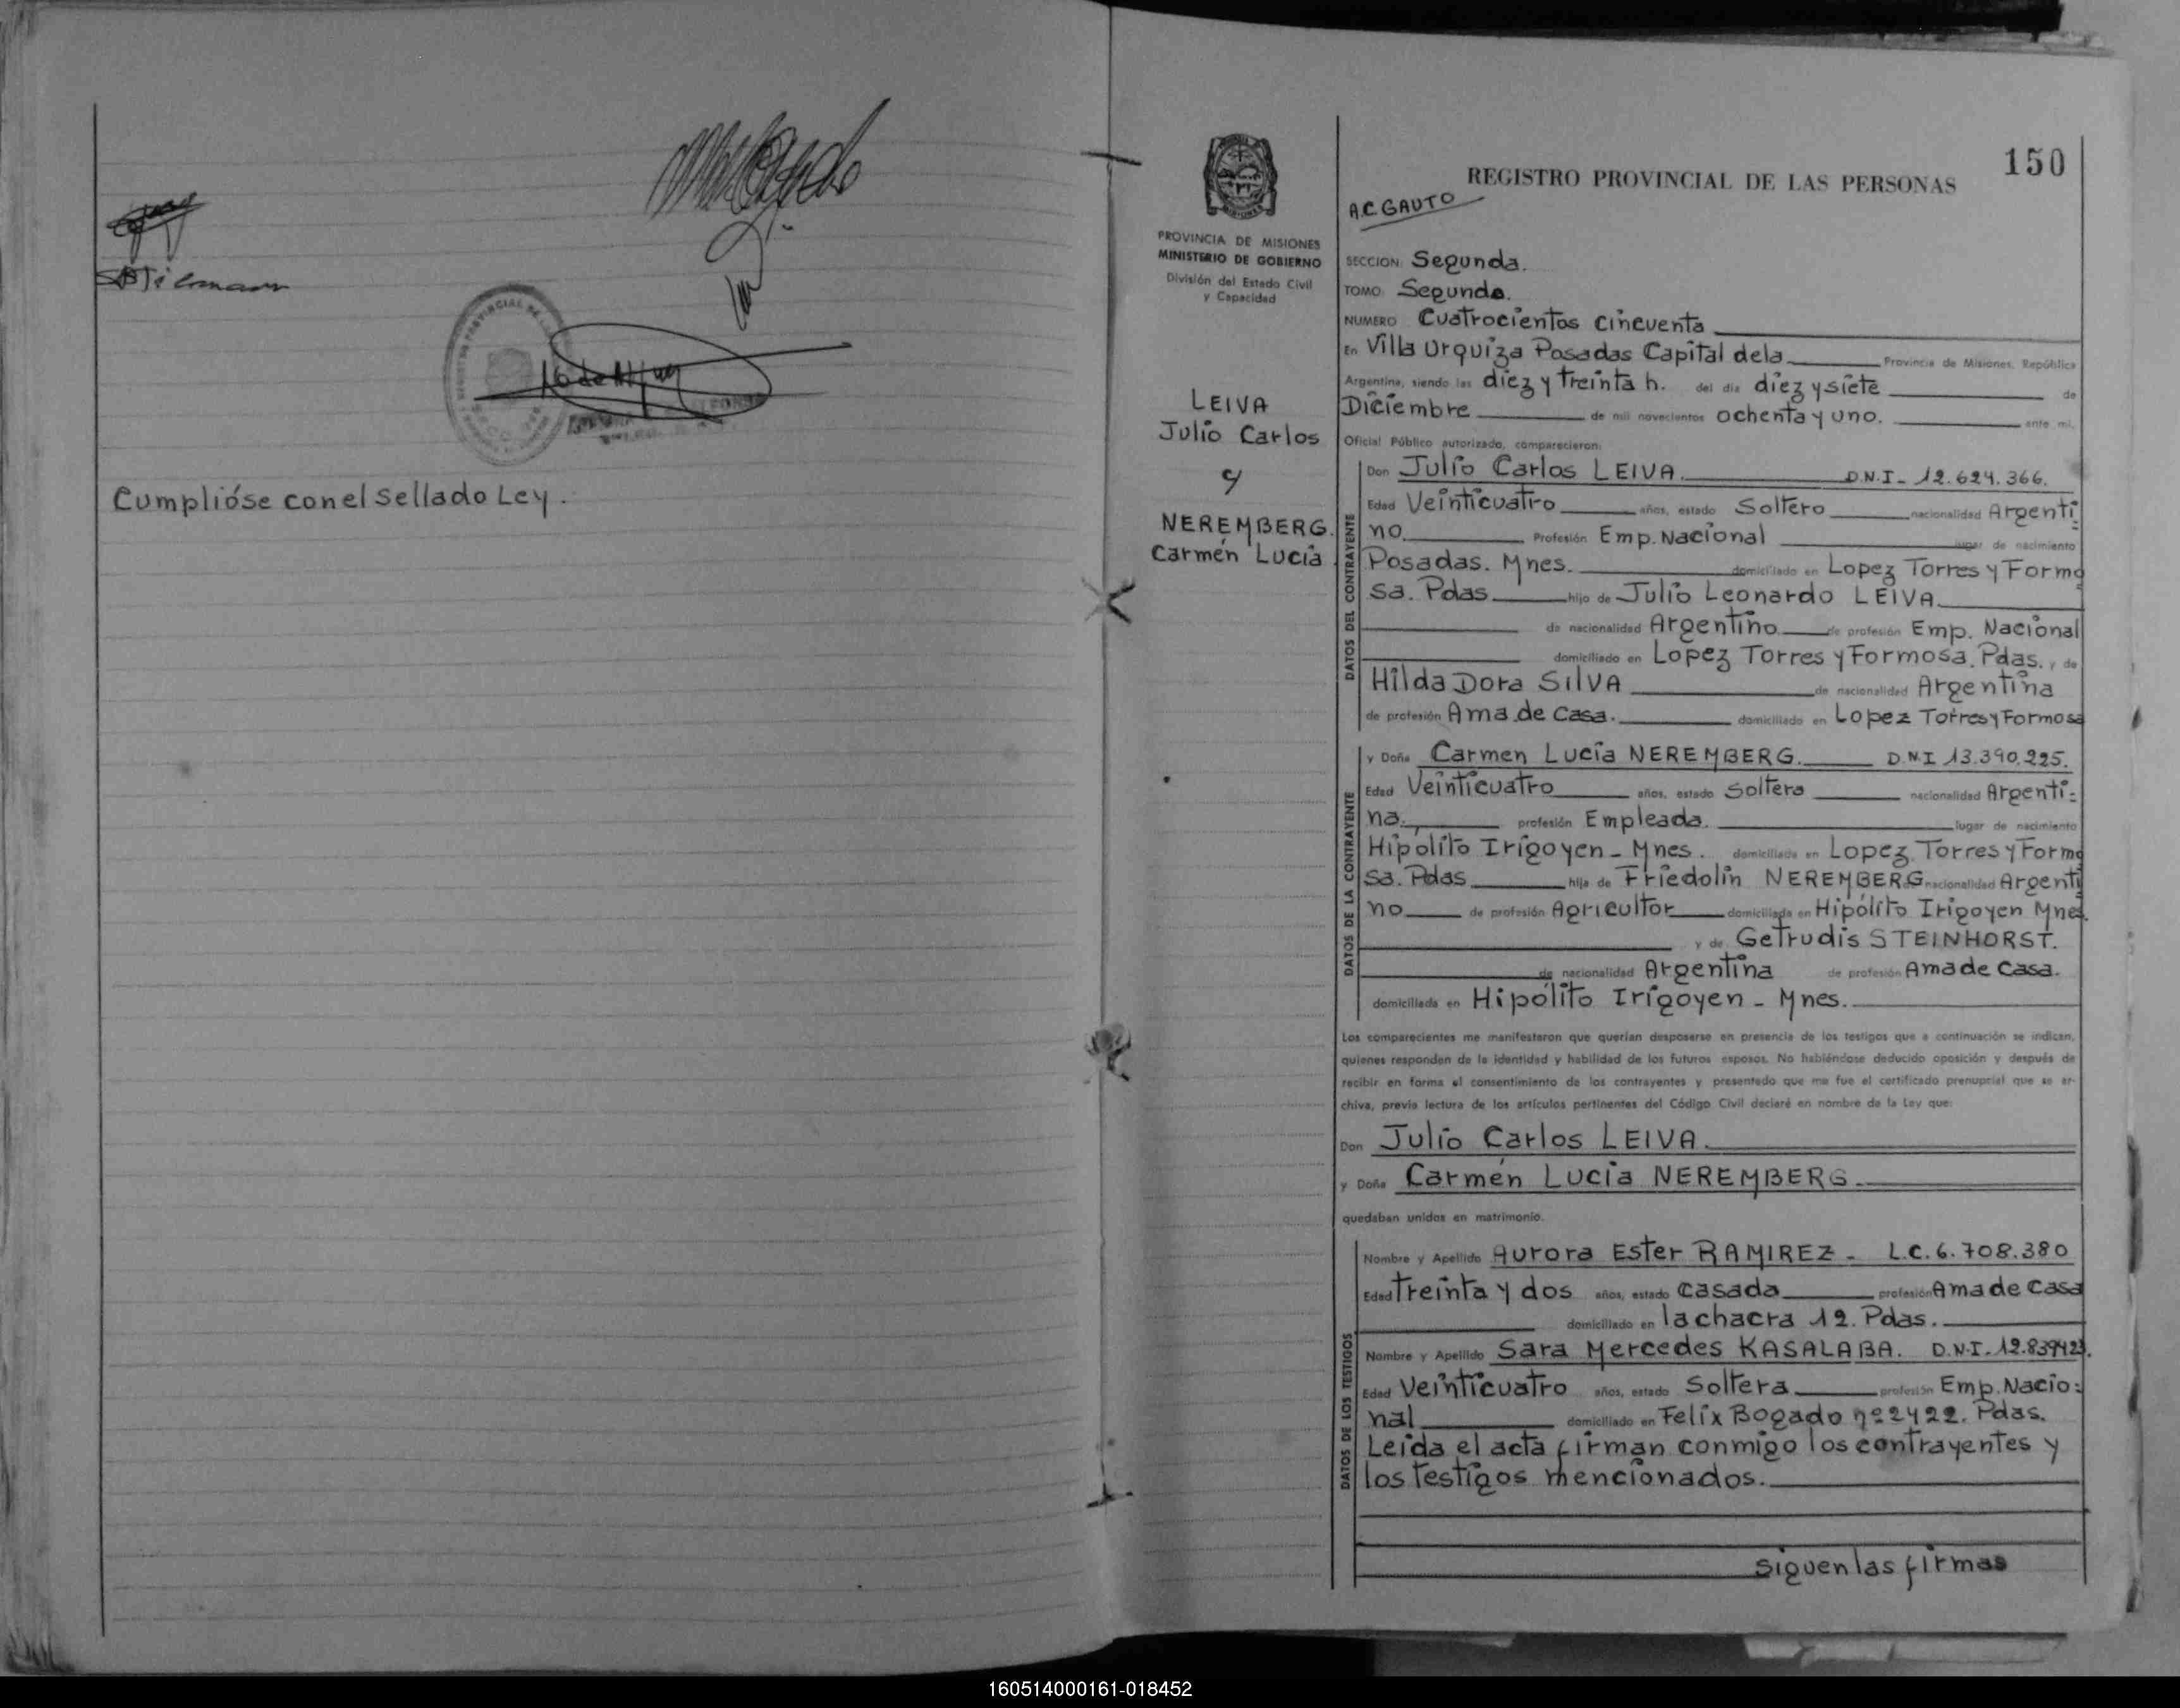 Cumplióse con el sellado Ley.
150
REGISTRO PROVINCIAL DE LAS PERSONAS
A.C GAUTO
PROVINCIA DE MISIONES
MINISTERIO DE GOBIERNO
División del Estado Civil
y Capacidad
LEIVA
Julio Carlos
y
NEREMBERG.
Carmen Lucía
SECCION: Segunda.
TOMO: Segundo.
NUMERO Cuatrocientos cincuenta
En Villa Urquiza Posadas Capital dela Provincia de Misiones, República
Argentina, siendo las diez y treinta h. del día diez y siete de
Diciembre de mil novecientos ochenta y uno. ante mí,
Oficial Público autorizado, comparecieron:
DATOS DEL CONTRAYENTE
Don Julio Carlos LEIVA. D.N.I- 12.624.366.
Edad Veinticuatro años, estado Soltero nacionalidad Argenti
no. Profesión Emp. Nacional lugar de nacimiento
Posadas. Mnes. domiciliado en Lopez Torres y Formo
sa. Pdas hijo de Julio Leonardo LEIVA
de nacionalidad Argentino de profesión Emp. Nacional
domiciliado en Lopez Torres y Formosa. Pdas. y de
Hilda Dora SILVA de nacionalidad Argentina
de profesión Ama de Casa. domiciliada en Lopez Torres y Formosa
DATOS DE LA CONTRAYENTE
y Doña Carmen Lucía NEREMBERG. D.N.I 13.390.225.
Edad Veinticuatro años, estado Soltera nacionalidad Argenti-
na. profesión Empleada. lugar de nacimiento
Hipólito Irigoyen - Mnes. domiciliada en Lopez Torres y Formo
sa. Pdas hija de Friedolin NEREMBERG nacionalidad Argenti
no de profesión Agricultor domiciliado en Hipólito Irigoyen Mnes.
y de Getrudis STEINHORST.
de nacionalidad Argentina de profesión Ama de Casa.
domiciliada en Hipólito Irigoyen - Mnes.
Los comparecientes me manifestaron que querían desposarse en presencia de los testigos que a continuación se indican,
quienes responden de la identidad y habilidad de los futuros esposos. No habiéndose deducido oposición y después de
recibir en forma el consentimiento de los contrayentes y presentado que me fue el certificado prenupcial que se ar-
chiva, previa lectura de los artículos pertinentes del Código Civil declaré en nombre de la Ley que:
Don Julio Carlos LEIVA.
y Doña Carmen Lucía NEREMBERG.
quedaban unidos en matrimonio.
DATOS DE LOS TESTIGOS
Nombre y Apellido Aurora Ester RAMIREZ - L.C. 6.708.380
Edad treinta y dos años, estado casada profesión Ama de Casa
domiciliado en la chacra 12. Pdas.
Nombre y Apellido Sara Mercedes KASALABA. D.N.I. 12.839423.
Edad Veinticuatro años, estado Soltera profesión Emp. Nacio-
nal domiciliado en Felix Bogado nº 2422. Pdas.
Leida el acta firman conmigo los contrayentes y
los testigos mencionados.
Siguen las firmas
160514000161-018452